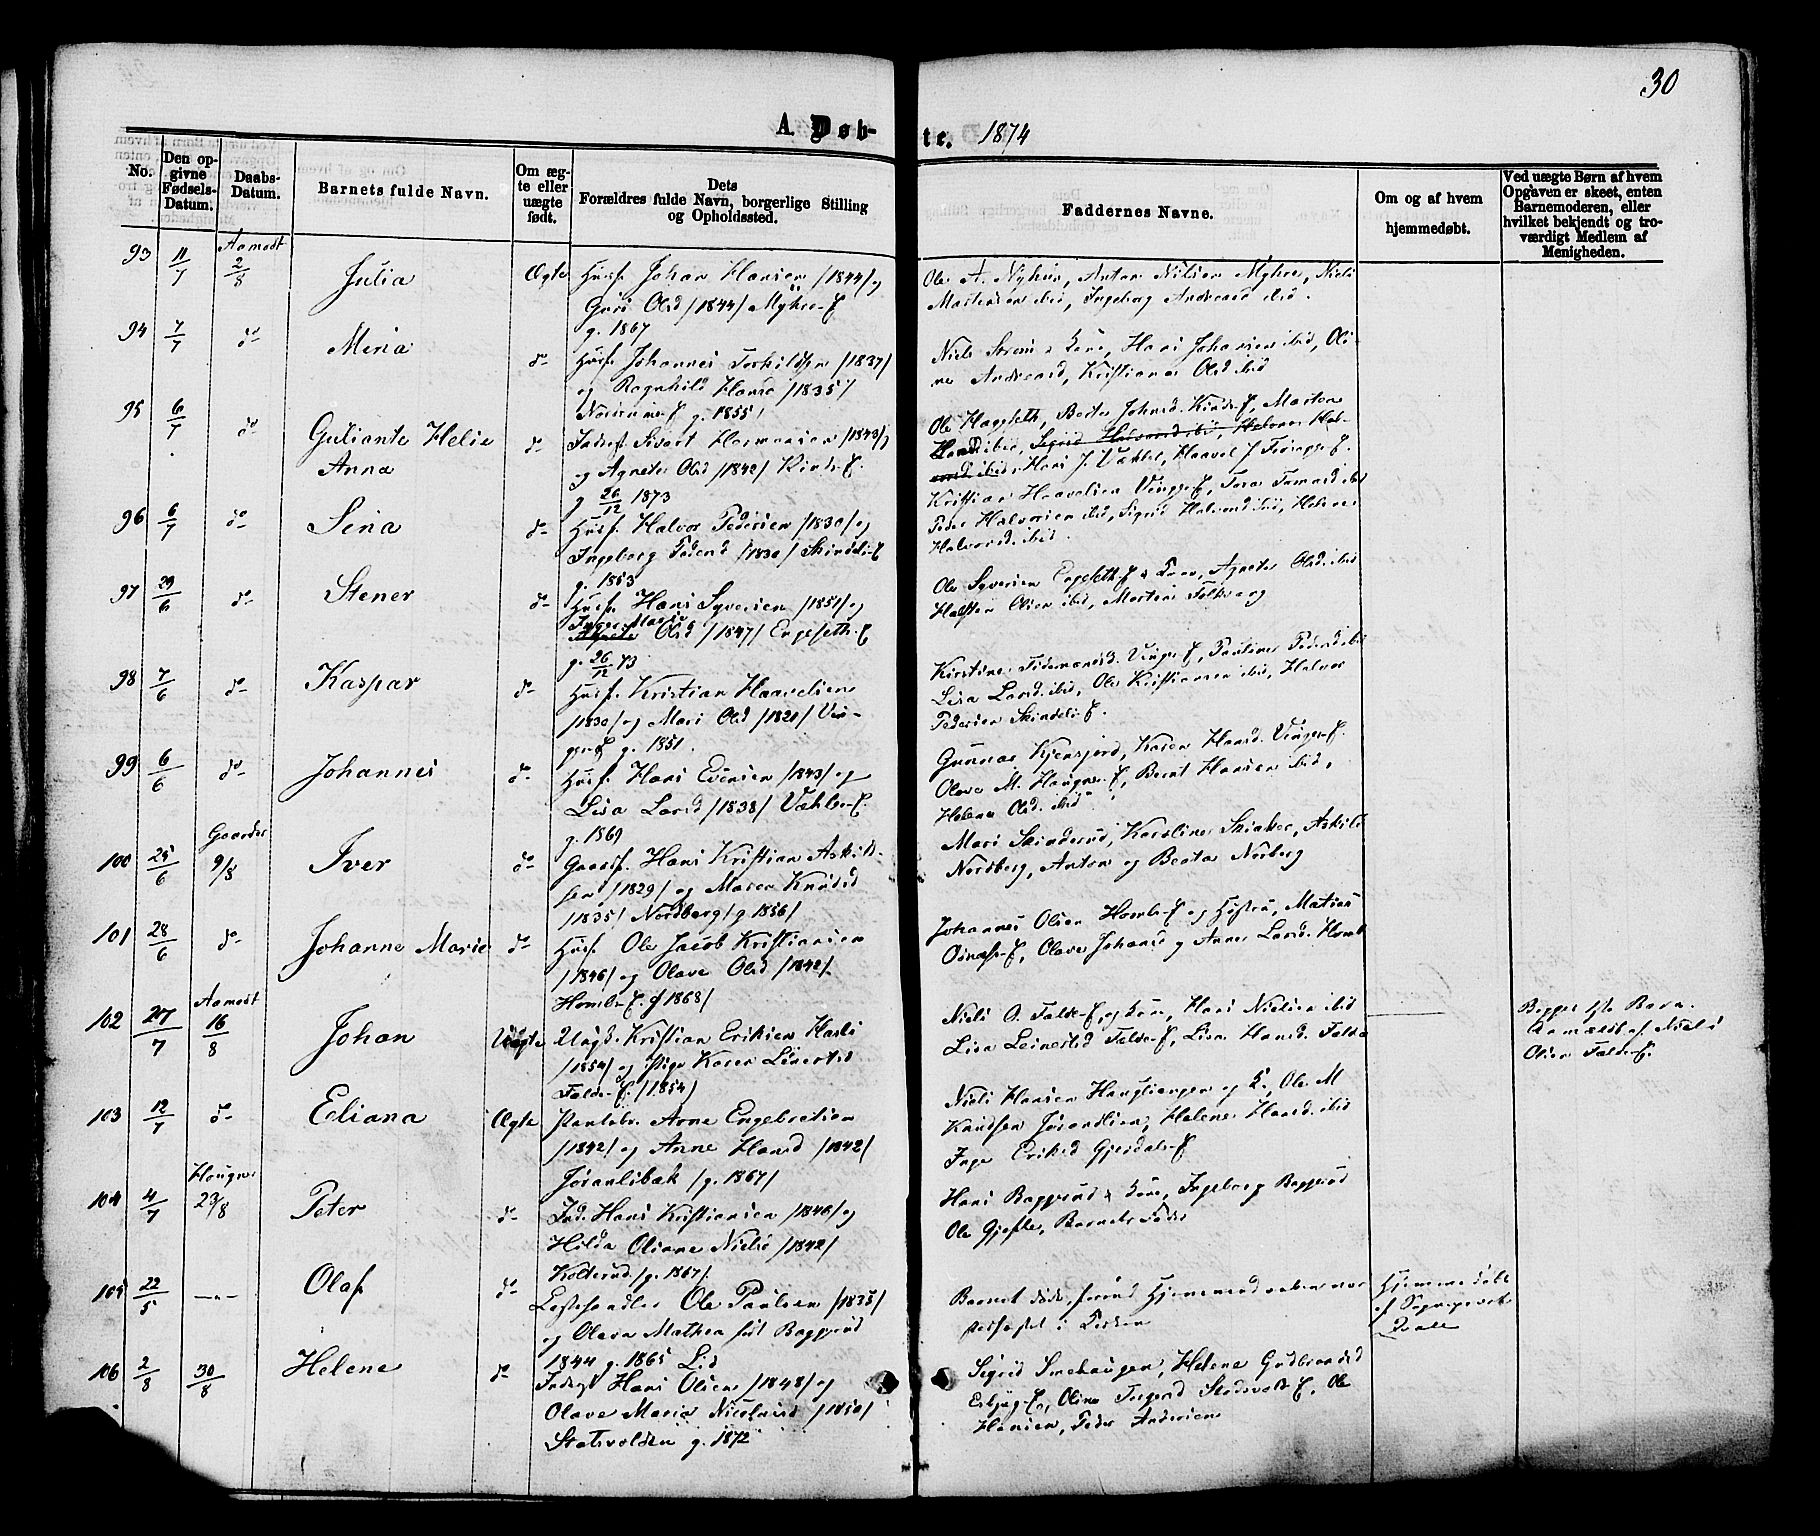 30
A. Døb-
te. 1874
No.
Den op-
givne
Fødsels-
Datum.
Daabs-
Datum.
Barnets fulde Navn.
Om æg-
te eller
uægte
født.
Dets
Forældres fulde Navn, borgerlige Stilling
og Opholdssted.
Faddernes Navne.
Om og af hvem
hjemmedøbt.
Ved uægte Børn af hvem
Opgaven er skeet, enten
Barnemoderen, eller
hvilket bekjendt og tro-
værdigt Medlem af
Menigheden.
93 11/7 Aamodt 2/8 Julia Ægte Husf. Johan Hansen /1844/ og
Guri Olsd /1844/ Myhre-E
g. 1867
Ole A. Myhre, Anton Nilsen Myhre, Niels
Mortensen ibid, Ingeborg Andreasd ibid.
94 7/7 do Mina do Husf. Johannes Torkildsen /1837/
og Ragnhild Hansd /1835/
g. 1855/
Niels Strøm & Kone, Hans Johansen ibid, Oli-
ne Andreasd, Kristiane Olsd ibid
95 6/7 do Guliante Helie
Anna
do Inderst Sivert Hermansen /1843/
og Agnete Olsd /1842/ Kinds-E.
g 26/12 1873
Ole Hagseth, Berte Johnsd. Kinds-E, Marton
ibid, Sigrid Halvorsd ibid, Halvor Hal-
ibid, Hans J. Væhle, Haavel J.
96 6/7 do Sina do Husf. Halvor Pedersen /1830/ og
Ingeborg Pedersd /1830/ Skindeli-E
g. 1853
Kristian Haavelsen Vinge-E, Tora ibid
Peder Halvorsen ibid, Sigrid Halvorsd ibid, Helene
Halvorsd. ibid.
97 29/6 do Stener do Husf. Hans Syversen /1851/ og
Inger Marie
Agnete Olsd /1847/ Engeseth-E
g. 26/12 73
Ole Syversen Engeseth-E & Kone, Agnete Olsd. ibid
Halsten Olsen ibid, Morten
98 7/6 do Kaspar do Husf. Kristian Haavelsen
/1830/ og Mari Olsd /1821/ Vin-
ge-E g. 1851.
Kirstine Vinge-E, Pauline Pedersd ibid
Lisa Larsd. ibid, Ole Kristiansen ibid, Halvor
Pedersen Skindeli-E.
99 6/6 do Johannes do Husf. Hans Evensen /1843/ og
Lisa Larsd /1838/ Væhler-E.
g. 1869
Gunnar Kjensjord, Karen Hansd. Vinge-E.
Olave M. Haugner-E, Bernt Hansen ibid,
Helene Olsd. ibid
100 25/6 Gaarder 9/8 Iver do Gaardf. Hans Kristian Askild-
sen /1829/ og Maren Knudsd
/1835/ Nordberg /g 1856/
Mari Skinderud, Karoline Skiaker, Askild
Nordberg, Anton og Beate Norberg
101 28/6 do Johanne Marie do Husf. Ole Jacob Kristiansen
/1846/ og Olave Olsd /1842/
Homle-E. g 1868/
Johannes Olsen Homle-E og Hustru, Matias
Olave Johansd g Anne Larsd. Homle
102 27/7 Aamodt 16/8 Johan Uægte Ungk. Kristian Eriksen Hasli
/1854/ og Pige Karen Linertsd
Falde-E. /1854/
Niels O. Falde-E, og Kone, Hans Nielsen ibid
Lisa Leinertsd Falde-E, Lisa Hansd. Falde
Begges 1ste Barn.
Anmeldt af Niels
Olsen Falde-E.
103 12/7 do Eliana Ægte Plantebr. Arne Engebretsen
/1842/ og Anne Hansd /1842/
Jøranlibak /g. 1867/
Niels Hansen Haugsbergen og K. Ole M
Knudsen Jørandlien, Helene Hansd. ibid
Inge Eriksd Gjerdals-E
104 4/7 Haugner 23/8 Peter do Ind. Hans Kristiansen /1840/ og
Hilda Oliane Nielsd /1842/
Kolterud /g. 1867/.
Hans Baggerud & Kone, Ingeborg Baggerud
Ole Gjefle, Barnets Fader
105 22/5 — Olaf do Lastehandler Ole Paulsen /1835/
og Olava Mathea født Baggerud
1844 g. 1865 Lid
Barnet døde forend Hjemmedaaben var
stadfæstet i Kirken
Hjemmedøbt
af Sognepræst
106 2/8 30/8 Helene do Inderst Hans Olsen /1848/ og
Olave Marie Nicolaisd /1850/
Statsvolden g. 1872
Sigrid Smehaugen, Helene Gudbrandsd
Esbjug-E, Oline Ingersd Stadsvold-E, Ole
Hansen, Peder Andersen